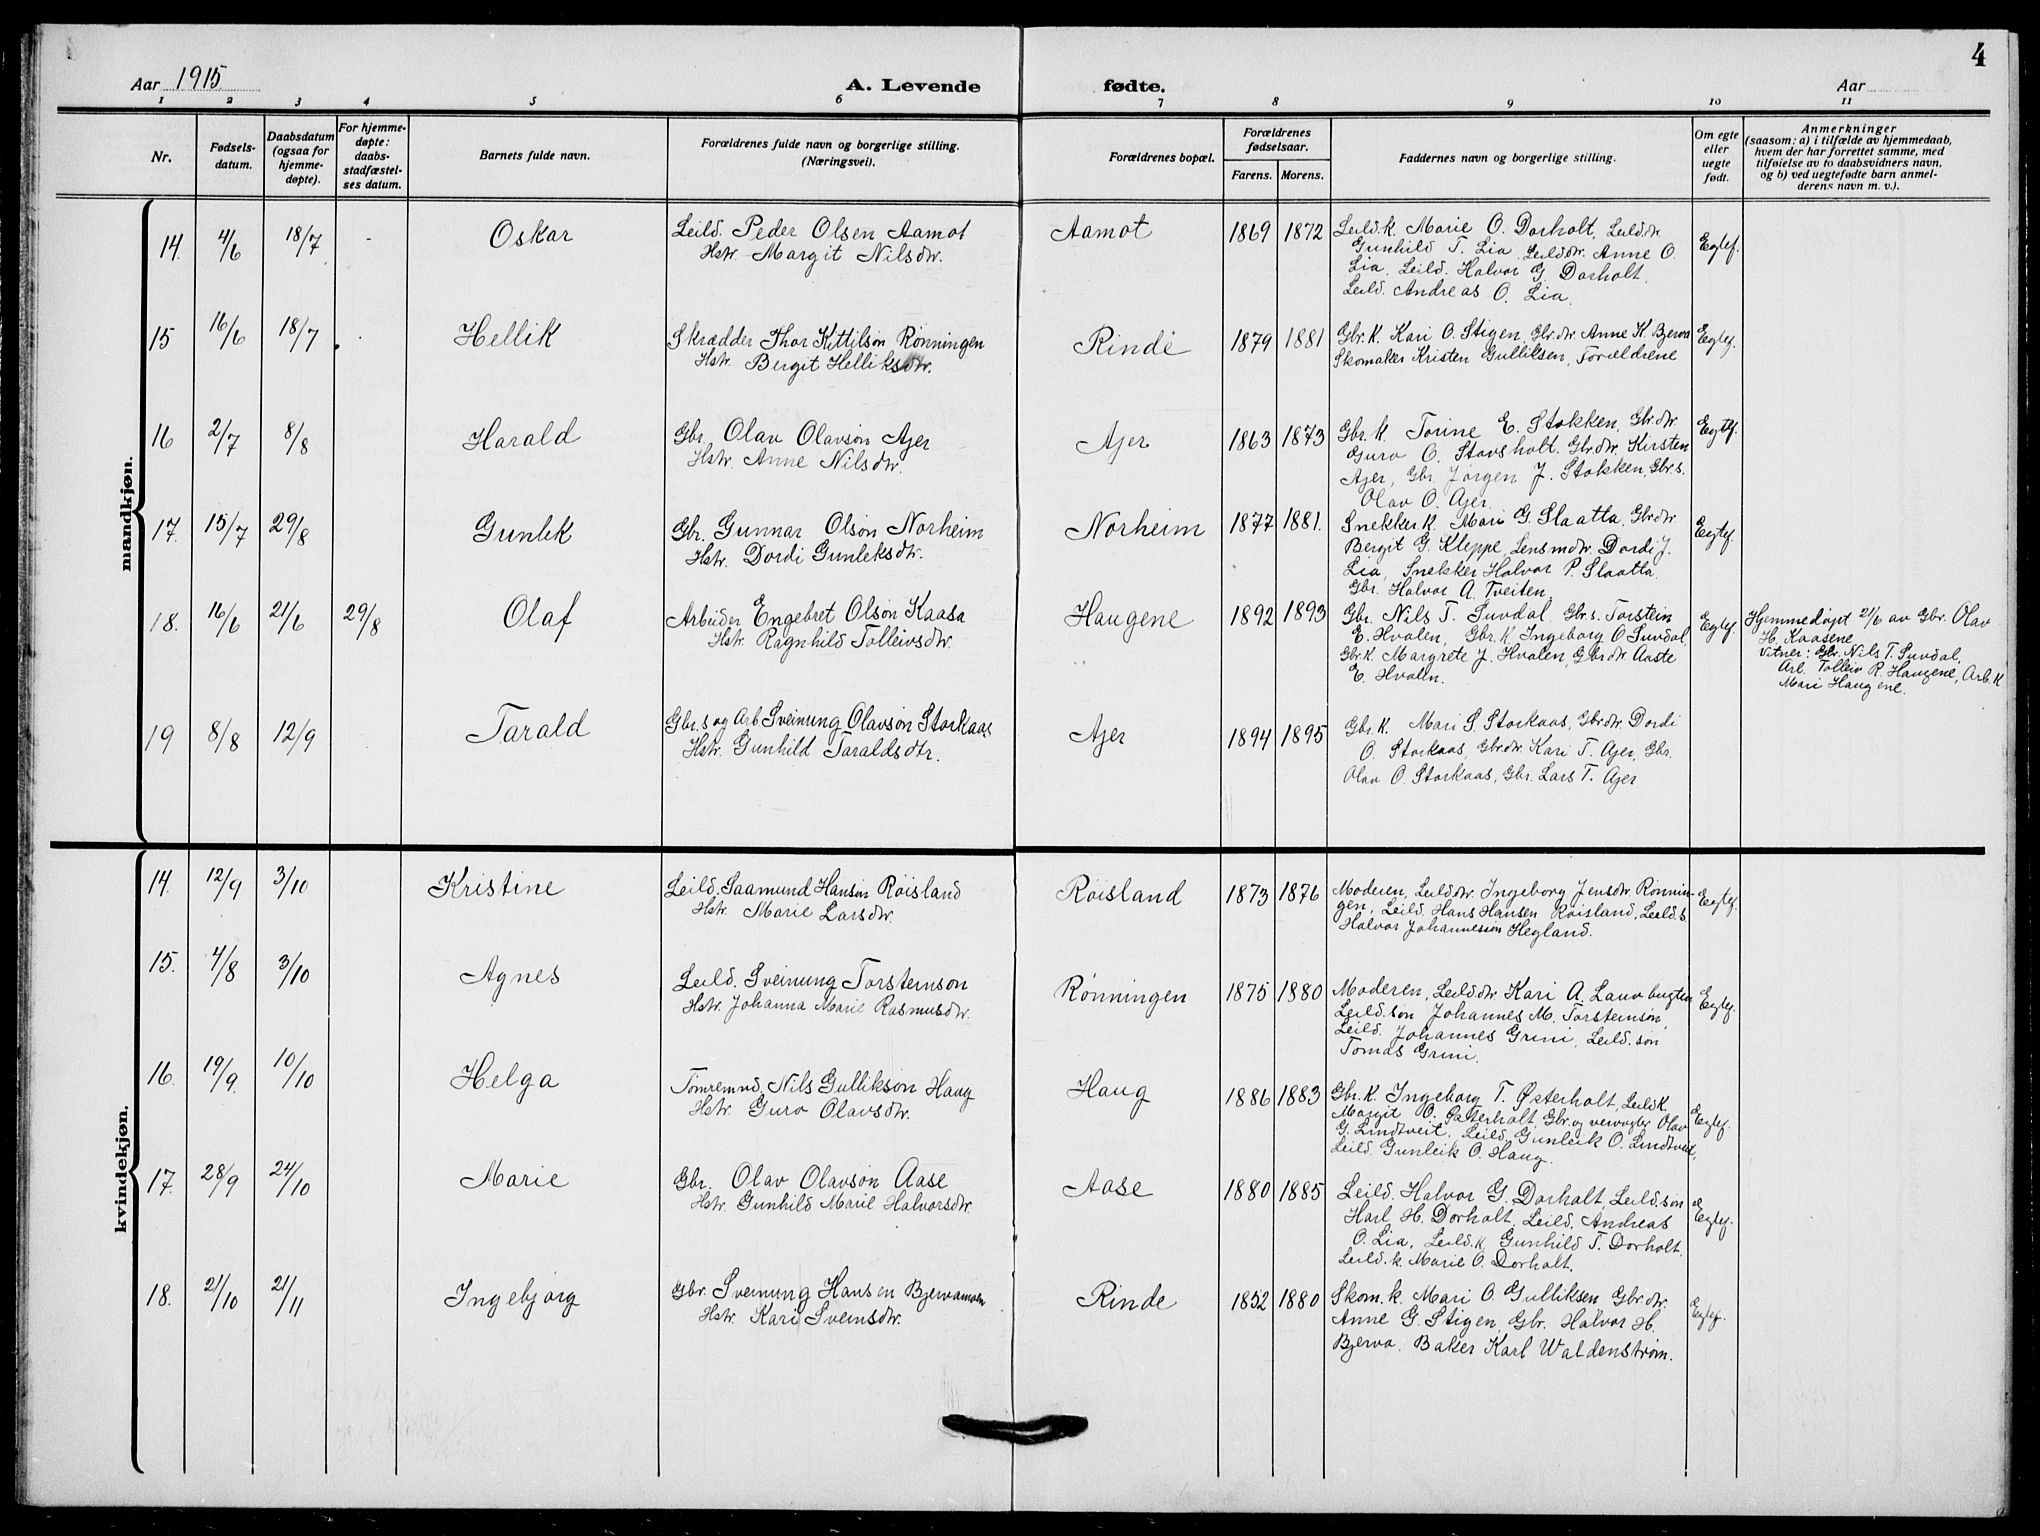 4
Aar 1915
A. Levende
fødte.
Aar
1 2 3 4 5 6 7 8 9 10 11
Nr.
Fødsels-
datum.
Daabsdatum
(ogsaa for
hjemme-
døpte).
For hjemme-
døpte:
daabs-
stadfæstel-
ses datum.
Barnets fulde navn.
Forældrenes fulde navn og borgerlige stilling.
(Næringsvei).
Forældrenes bopæl.
Forældrenes
fødselsaar.
Farens. Morens.
Faddernes navn og borgerlige stilling.
Om egte
eller
uegte
født.
Anmerkninger
(saasom: a) i tilfælde av hjemmedaab,
hvem der har forrettet samme, med
tilføielse av to daabsvidners navn,
og b) ved uegtefødte barn anmel-
derens navn m. v.).
mandkjøn.
14. 4/6 18/7 - Oskar
Leild. Peder Olsen Aamot
Hstr. Margit Nilsdtr.
Aamot 1869 1872
Leild.k. Marie O. Dorholt, Leild.dtr.
Gunhild T. Lia, Leild.dtr. Anne O.
Lia, Leild. Halvor G. Dorholt.
Leild. Andreas O. Lia.
Egtef.
15 16/6 18/7 . Hellik
Skrædder Thor Kittilson Rønningen
Hstr. Bergit Helliksdtr.
Rinde 1879 1881
Gbr.k. Kari O. Stigen, Gbr.dtr. Anne K. Bjerva
Skomaker Kristen Gulliksen, Forældrene
Egtef.
16 2/7 8/8 Harald
Gbr. Olav Olavson Ajer
Hstr. Anne Nilsdtr.
Ajer 1863 1873
Gbr.k. Torine E. Stokken, Gbr.dtr.
Guro O. Stavsholt. Gbr.dtr. Kirsten
Ajer, Gbr. Jørgen J. Stokken, Gbr.s.
Olav O. Ajer.
Egtef.
17. 15/7 29/8 Gunlek
Gbr. Gunnar Olson Norheim
Hstr. Dordi Gunleksdtr.
Norheim 1877 1881.
Snekker k. Mari G. Slaatta, Gbr.dtr.
Bergit G. Kleppe, Lensm.dtr. Dordi J.
Lia, Snekker Halvor P. Slaatta.
Gbr. Halvor A. Tveiten.
Egtef.
18. 16/6 21/6 29/8 Olaf
Arbeider Engebret Olson Kaasa
Hstr. Ragnhild Tolleivsdtr.
Haugene 1892 1893
Gbr. Nils T. Suvdal, Gbr.s. Torstein
E. Hvalen, Gbr.k. Ingeborg O. Suvdal,
Gbr.k. Margrete J. Hvalen, Gbr.dtr. Aaste
E. Hvalen.
Egtef.
Hjemmedøpt 21/6 av Gbr. Olav
H. Kaasene
Vitner: Gbr. Nils T. Suvdal,
Arb. Tolleiv R. Haugene, Arb.k
Mari Haugene.
19 8/8 12/9 Tarald
Gbr.s og Arb. Sveinung Olavson Storkaas
Hstr. Gunhild Taraldsdtr.
Ajer 1894 1895
Gbr.k. Mari S. Storkaas, Gbr.dtr. Dordi
O. Storkaas, Gbr.dtr. Kari T. Ajer, Gbr.
Olav O. Storkaas, Gbr. Lars T. Ajer
kvindekjøn.
14. 12/9 3/10 Kristine
Leild. Saamund Hanson Røisland
Hstr. Marie Larsdtr.
Røisland 1873 1876
Moderen, Leild.dtr. Ingeborg Jensdtr. Rønnin-
gen, Leild. Hans Hansen Røisland, Leild.s.
Halvor Johannesson Hegland.
Egtef.
15. 4/8 3/10 Agnes
Leild. Sveinung Torsteinson
Hstr. Johanna Marie Rasmusdtr.
Rønningen 1875 1880
Moderen, Leild.dtr. Kari A. Lauvbugten
Leild.søn Johannes M. Torsteinson,
Leild. Johannes Grini, Leild.søn
Tomas Grini.
Egtef.
16. 19/9. 10/10 Helga
Tømremnd. Nils Gullikson Haug
Hstr. Guro Olavsdtr.
Haug 1886 1883
Gbr.k. Ingeborg T. Østerholt, Leild.k.
Margit O. Sæterholt, Gbr. og veivogter Olav
G. Lindtveit. Leild. Gunleik O. Lindtveit,
Leild. Gunleik O. Haug.
Egtef.
17. 28/9 24/10 Marie
Gbr. Olav Olavson Aase
Hstr. Gunhild Marie Halvorsdtr.
Aase 1880 1885
Leild. Halvor G. Dorholt, Leild.søn
Harl H. Dorholt, Leild. Andreas
O. Lia, Leild.k. Gunhild T. Dorholt.
Leild.k. Marie O. Dorholt.
Egtef.
18. 21/10 21/11 Ingebjørg
Gbr. Sveinung Hansen Bjervamoen
Hstr. Kari Sveinsdtr.
Rinde 1852 1880
Skom.k. Mari O. Gulliksen Gbr.dtr.
Anne G. Stigen, Gbr. Halvor H.
Bjerva. Baker Karl Waldenstrøm.
Egtef.